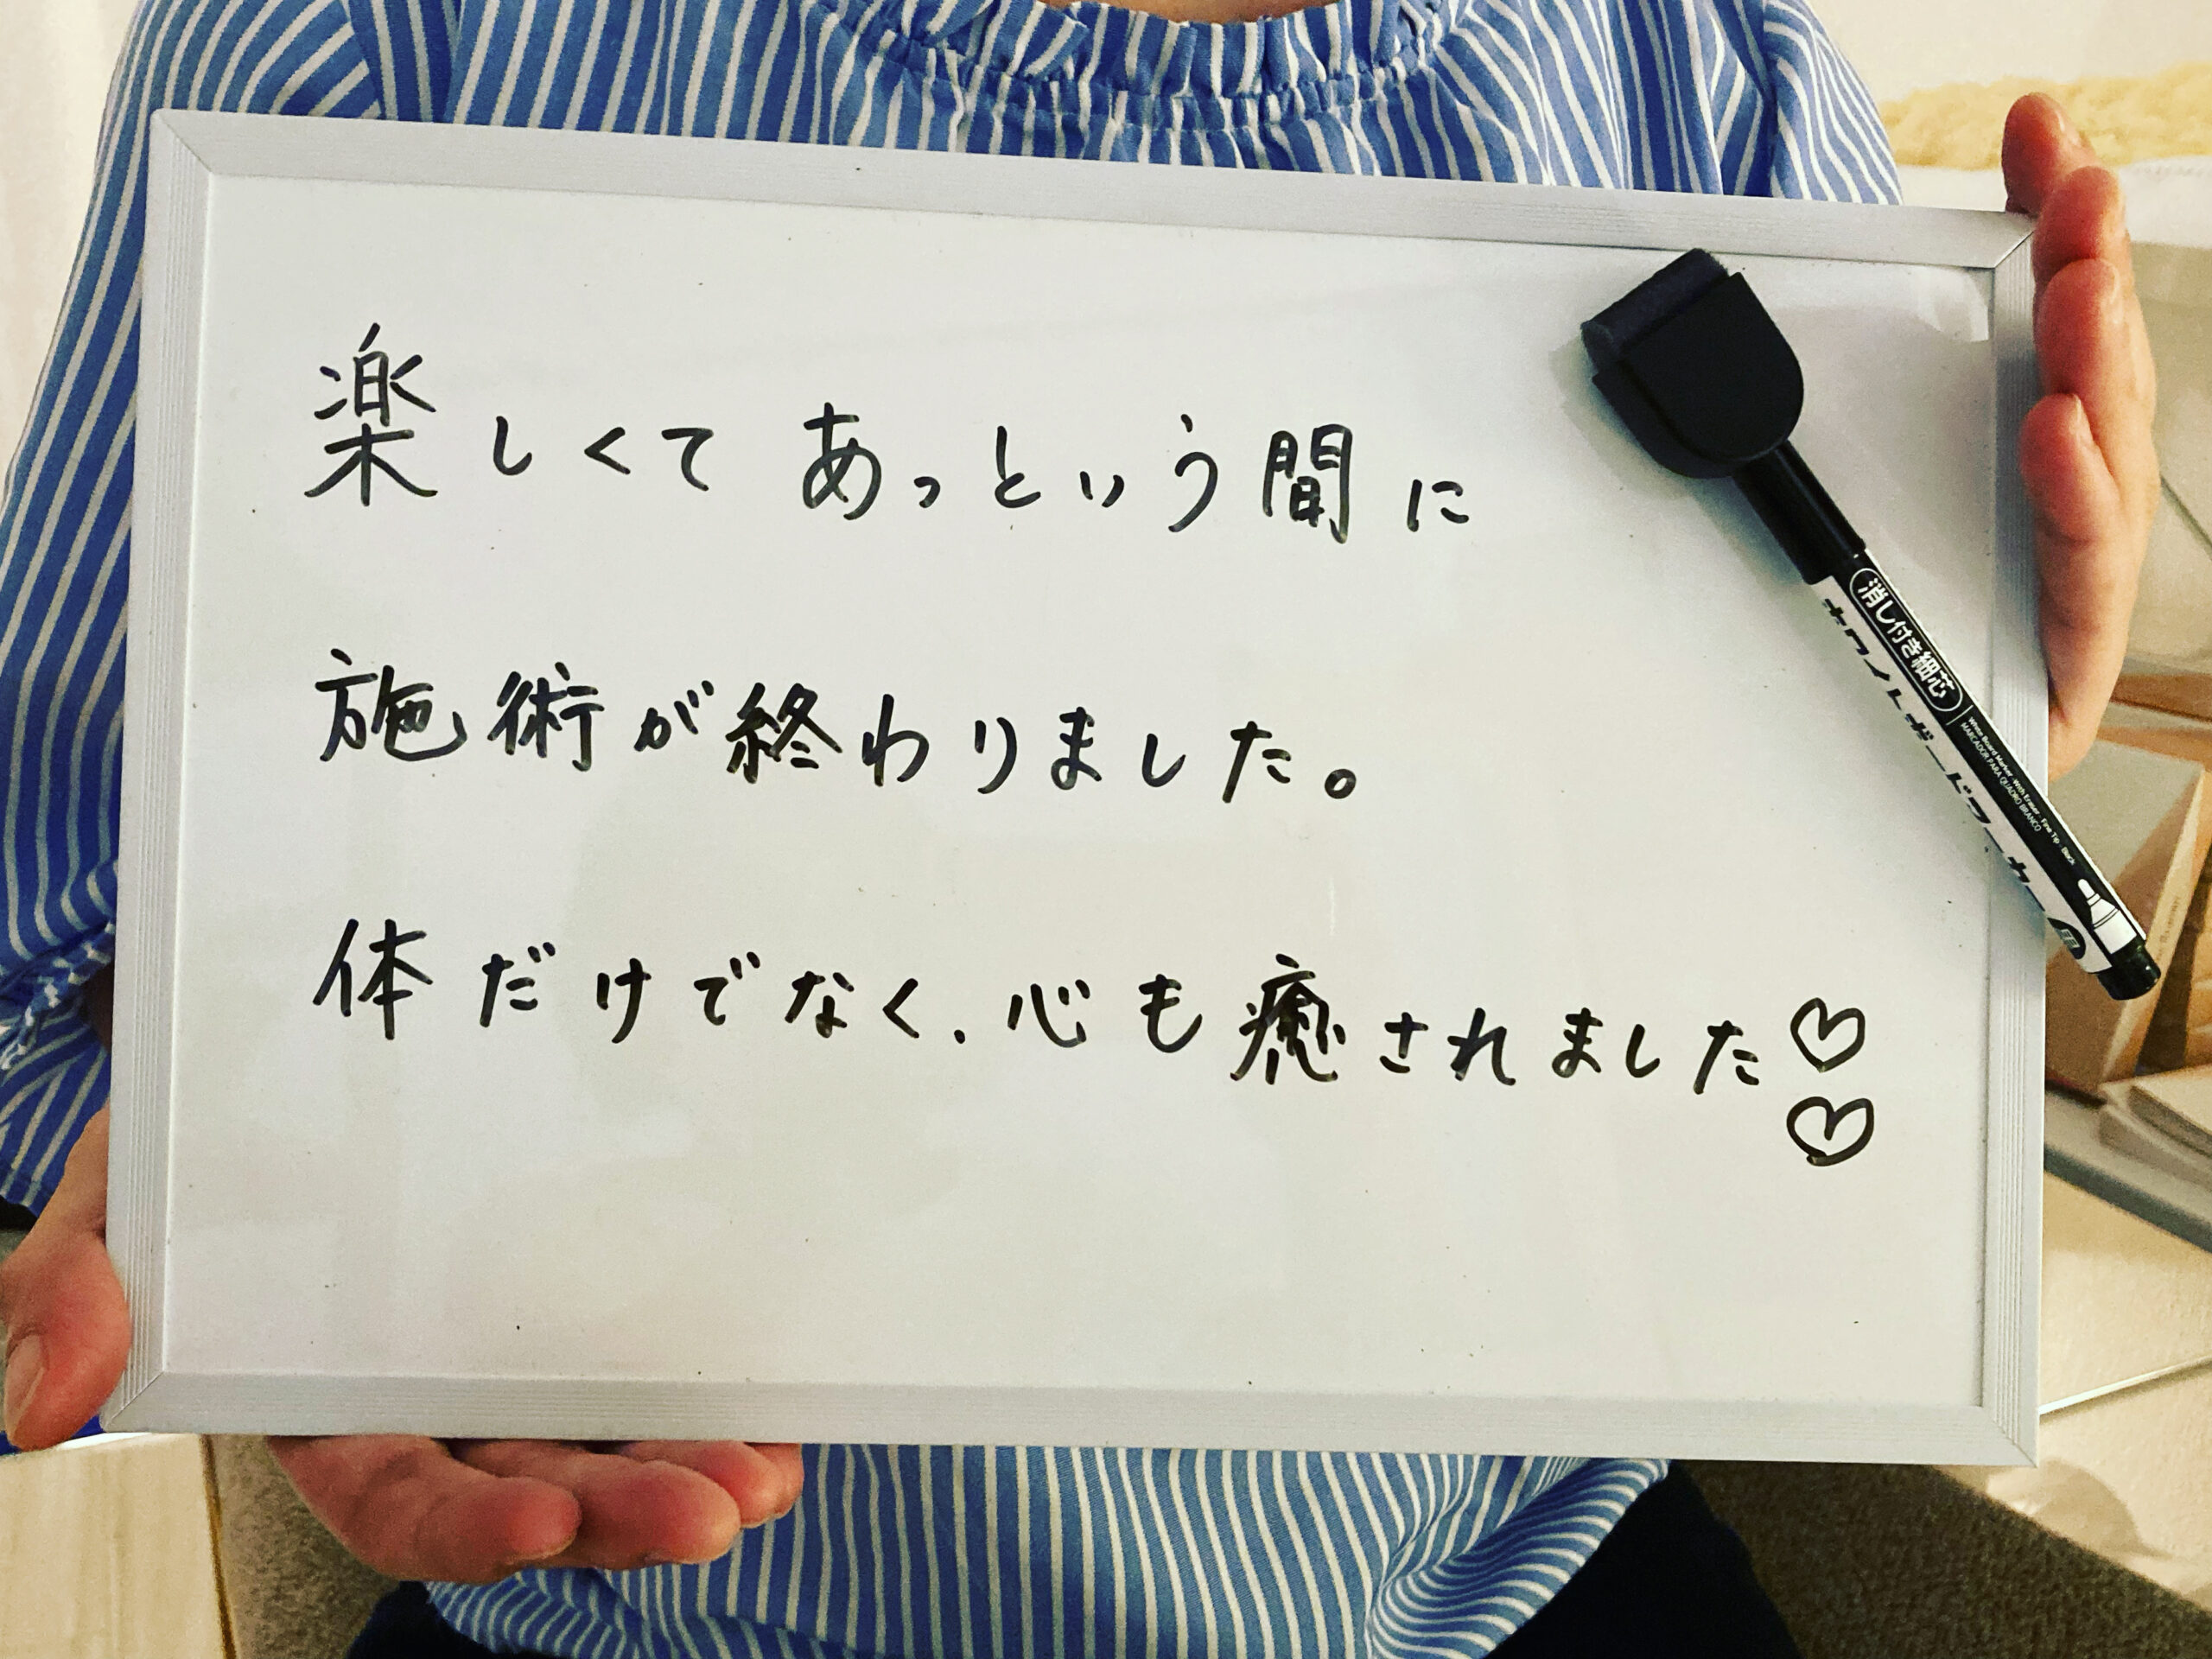 楽しくてあっという間に
施術が終わりました。
体だけでなく、心も癒されました♡
♡
消し付き細芯
ホワイトボードマーカー
White Board Marker・With Eraser・Fine Tip・Black
MARCADOR PARA QUADRO BRANCO